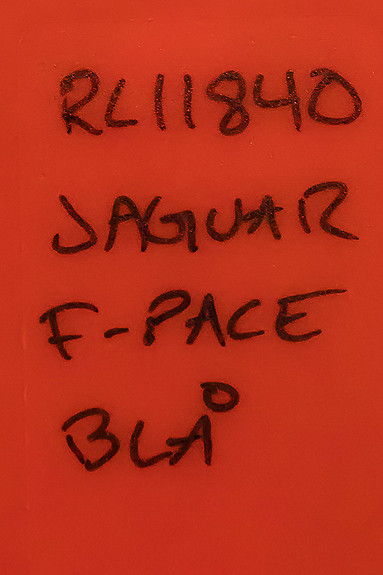 RL11840
JAGUAR
F-PACE
BLÅ